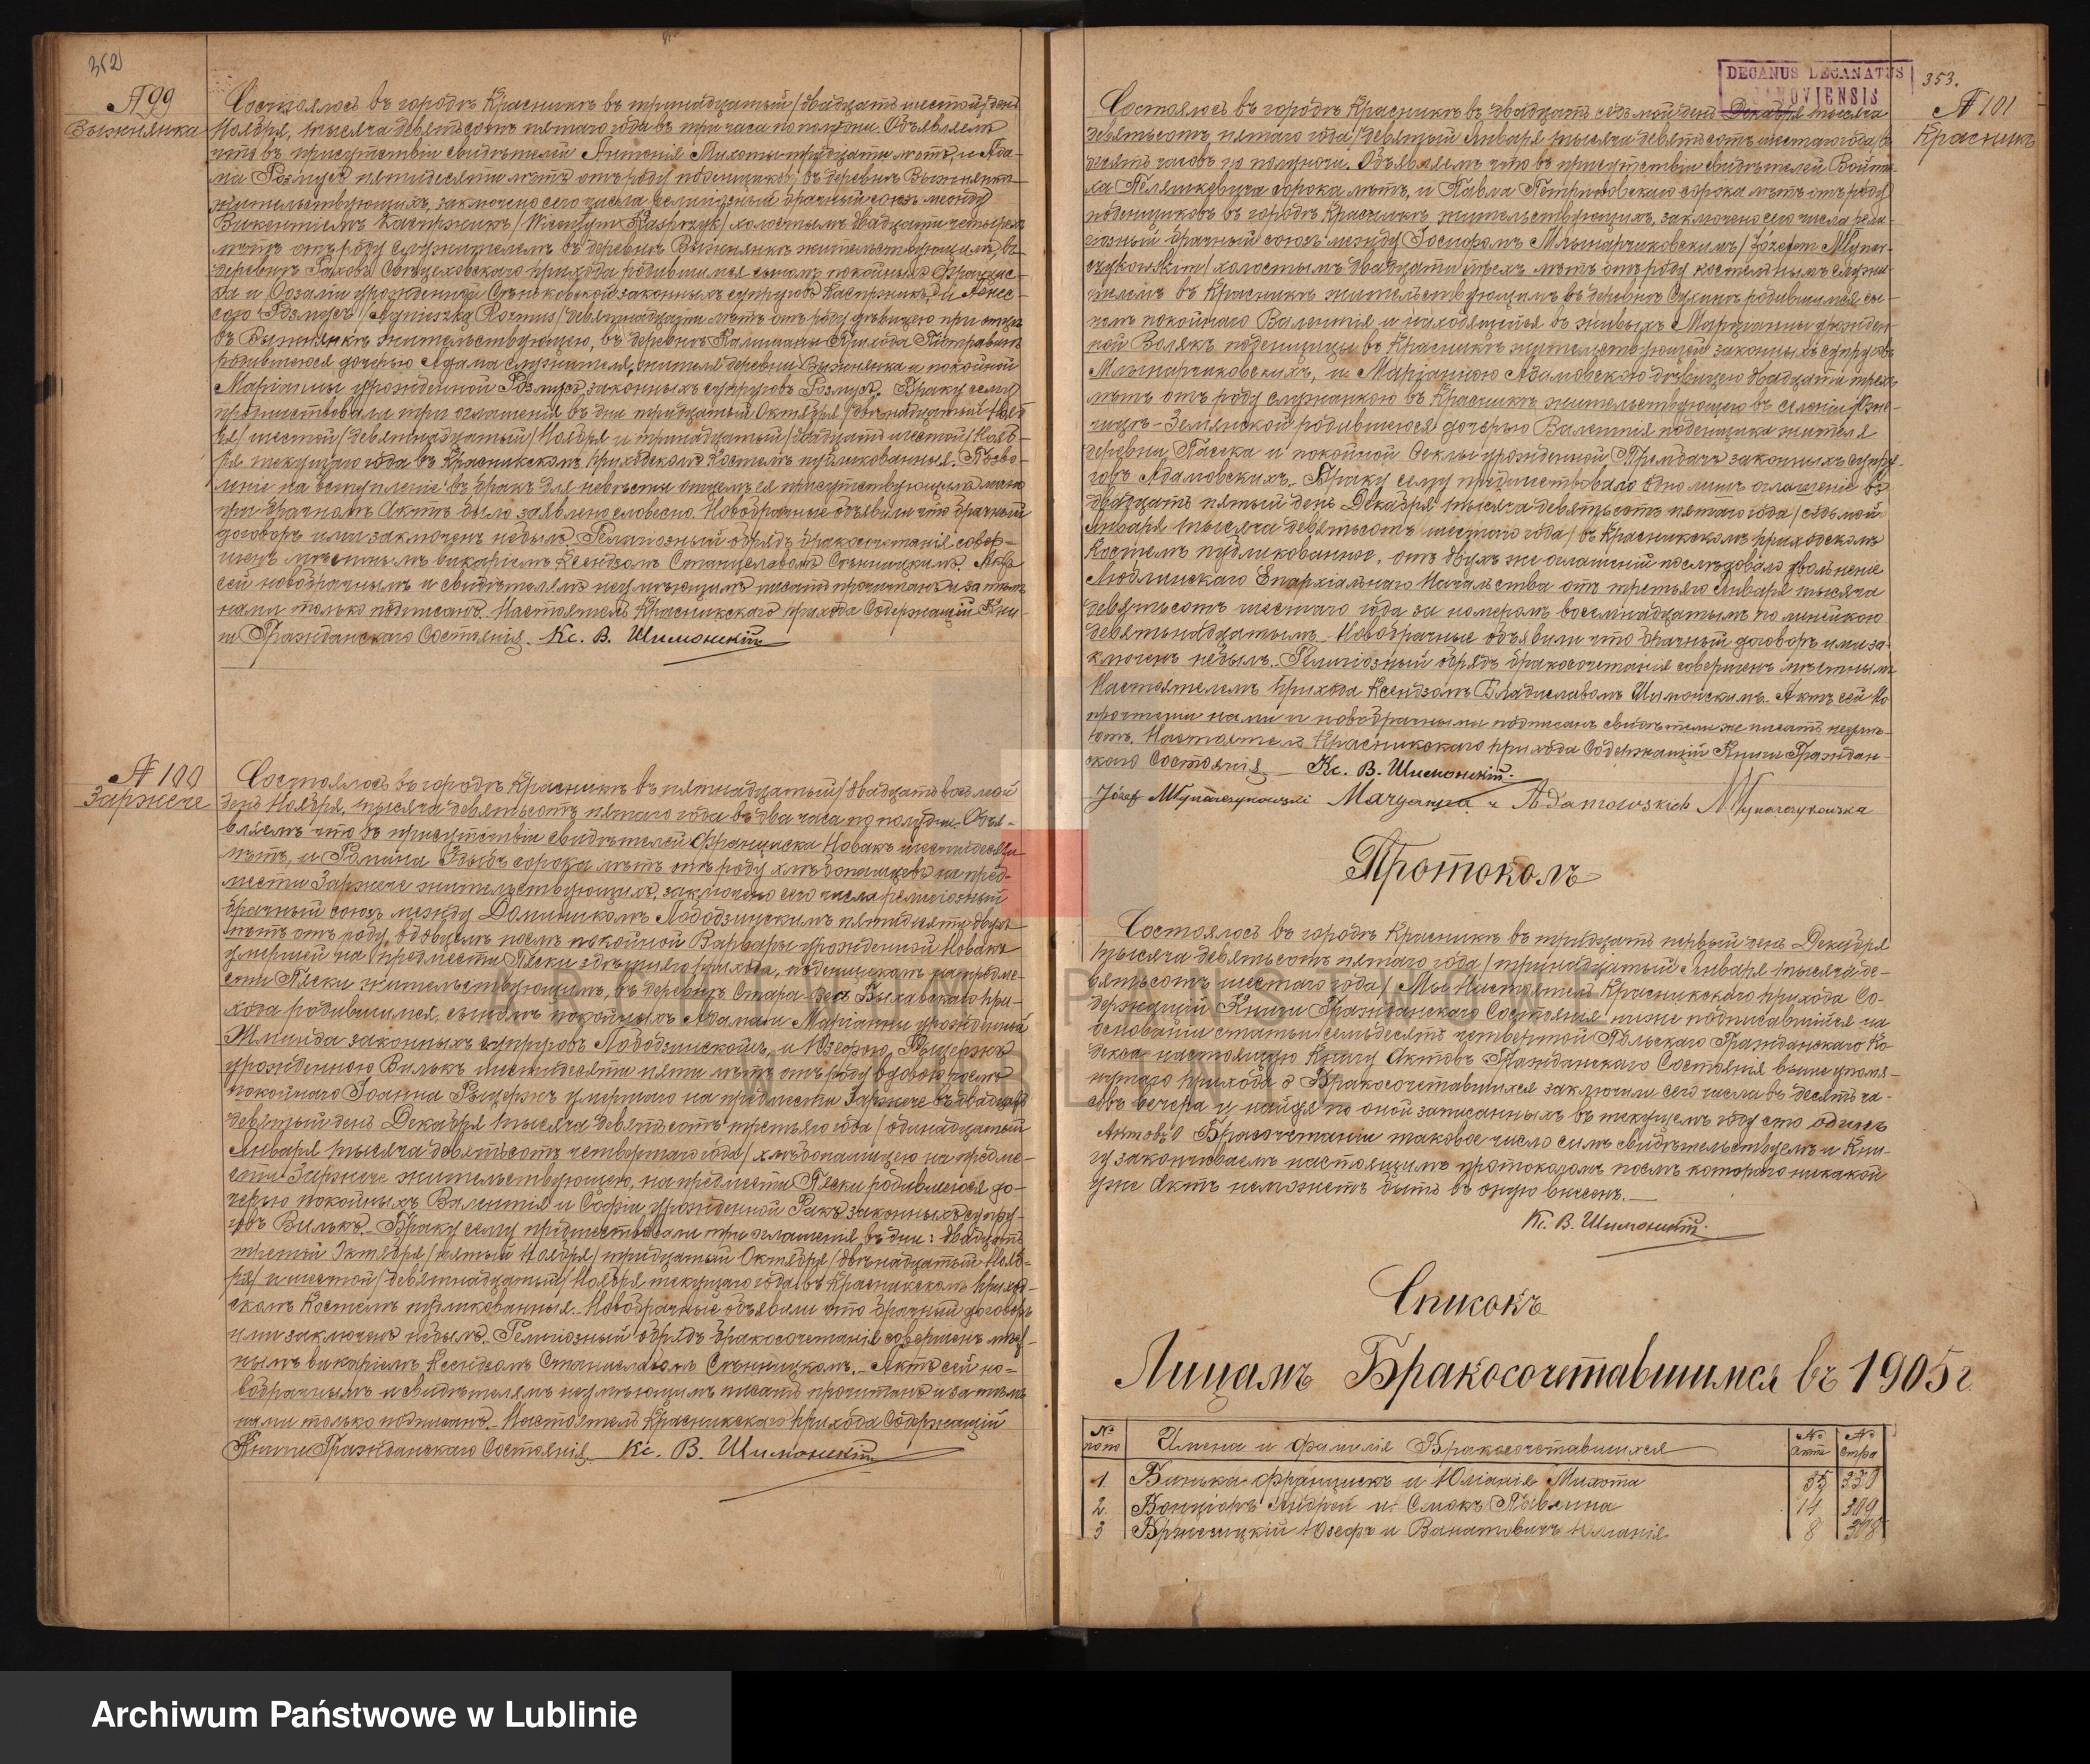 352
№ 99
Выжнянка
Состоялось въ городѣ Красникѣ въ тринадцатый /двадцать шестой/ день
Ноября, тысяча девятьсотъ пятаго года въ три часа по полудни. Объявляемъ
что въ присутствіи свидѣтелей Антонія Михоты тридцати лѣтъ, и Ада-
ма Розмусъ пятидесяти лѣтъ отъ роду поденщиковъ, въ деревнѣ Выжнянкѣ
жительствующихъ, заключено сего числа религіозный брачный союзъ между
Викентіемъ Каспржикъ /Wicentym Kasprzyk/ холостымъ двадцати четырехъ
лѣтъ отъ роду служителемъ въ деревнѣ Выжнянкѣ жительствующимъ, въ
деревнѣ прихода родившимся сыномъ покойныхъ Францис-
ка и Розаліи урожденной законныхъ супруговъ Каспржикъ, и Агнес-
сою Розмусъ /Agnieszką Rozmus/ девятнадцати лѣтъ отъ роду дѣвицею при отцѣ
въ Выжнянкѣ жительствующею, въ деревнѣ прихода
родившеюся дочерью Адама служителя, жителя деревни Выжнянка и покойной
Маріанны урожденной законныхъ супруговъ Розмусъ. Браку сему
предшествовали три оглашенія въ дни тридцатый Октября /двѣнадцатый Нояб-
ря/ шестой /девятнадцатый/ Ноября и тринадцатый /двадцать шестой/ Нояб-
ря текущаго года въ Красникскомъ приходскомъ Костелѣ публикованныя. Позво-
леніе на вступленіе въ бракъ для невѣсты отцемъ ея присутствующимъ лично
при брачномъ Актѣ было заявлено словесно. Новобрачные объявили что брачный
договоръ ими заключенъ небылъ. Религіозный обрядъ бракосочетанія совер-
шенъ мѣстнымъ викаріемъ Ксендзомъ Станиславомъ Сѣнницкимъ. Актъ
сей новобрачнымъ и свидѣтелямъ неумѣющимъ писать прочитанъ, и затѣмъ
нами только подписанъ. Настоятель Красникскаго прихода Содержащій Кни-
ги Гражданскаго Состоянія. Кс. В. Шимонскій
№ 100
Заржече
Состоялось въ городѣ Красникѣ въ пятнадцатый /двадцать восьмой/
день Ноября, тысяча девятьсотъ пятаго года въ два часа по полудни. Объя-
вляемъ что въ присутствіи свидѣтелей Франциска Новакъ шестидесяти
лѣтъ, и Романа сорока лѣтъ отъ роду хлѣбопашцевъ на пред-
мѣстьи Заржече жительствующихъ, заключено сего числа религіозный
брачный союзъ между Доминикомъ Лободзинскимъ пятидесяти двухъ
лѣтъ отъ роду, вдовцемъ послѣ покойной Варвары урожденной Новакъ
умершей на предмѣстьи Пяски здѣшняго прихода, поденщикомъ на предмѣ-
стьи Пяски жительствующимъ, въ деревнѣ Стара-Весь Быхавскаго при-
хода родившимся, сыномъ покойныхъ Адама и Маріанны урожденной
Жминда законныхъ супруговъ Лободзинскихъ, и Юзефою Рыцержъ
урожденною Вилькъ шестидесяти пяти лѣтъ отъ роду вдовою послѣ
покойнаго Іоанна Рыцержъ умершаго на предмѣстьи Заржече въ двадцать
девятый день Декабря тысяча девятьсотъ третьяго года /одинадцатый
Января тысяча девятьсотъ четвертаго года/ хлѣбопашцею на предмѣ-
стьи Заржече жительствующею, на предмѣстьи Пяски родившеюся до-
черью покойныхъ Валентія и Софіи урожденной Ракъ законныхъ супру-
говъ Вилькъ. Браку сему предшествовали три оглашенія въ дни: двадцать
третій Октября /пятый Ноября/ тридцатый Октября /двѣнадцатый Нояб-
ря/ и шестой /девятнадцатый/ Ноября текущаго года въ Красникскомъ приход-
скомъ Костелѣ публикованныя. Новобрачные объявили что брачный договоръ
ими заключенъ небылъ. Религіозный обрядъ бракосочетанія совершенъ мѣст-
нымъ викаріемъ Ксендзомъ Станиславомъ Сѣнницкимъ. Актъ сей но-
вобрачнымъ и свидѣтелямъ неумѣющимъ писать прочитанъ и затѣмъ
нами только подписанъ. Настоятель Красникскаго прихода Содержащій
Книги Гражданскаго Состоянія. Кс. В. Шимонскій
DECANUS DECANATUS
JANOVIENSIS
353.
№ 101
Красникъ
Состоялось въ городѣ Красникѣ въ двадцать седьмой день Декабря тысяча
девятьсотъ пятаго года /девятый Января тысяча девятьсотъ шестаго года/ въ
часовъ по полуночи. Объявляемъ что въ присутствіи свидѣтелей Войтѣ-
ха сорока лѣтъ, и Павла сорока лѣтъ отъ роду
поденщиковъ въ городѣ Красникѣ жительствующихъ, заключено сего числа рели-
гіозный брачный союзъ между Іосифомъ Млынарчиковскимъ /Józefem Młynar-
czykowskim/ холостымъ двадцати трехъ лѣтъ отъ роду костельнымъ служи-
телемъ въ Красникѣ жительствующимъ въ деревнѣ Сулинъ родившимся сы-
номъ покойнаго Валентія и находящейся въ живыхъ Маріанны урожден-
ной Волякъ поденщицы въ Красникѣ жительствующей законныхъ супруговъ
Млынарчиковскихъ, и Маріанною Адамовскою дѣвицею двадцати трехъ
лѣтъ отъ роду служанкою въ Красникѣ жительствующею въ селеніи
родившеюся дочерью Валентія поденщика жителя
деревни Пасека и покойной Феклы урожденной законныхъ супру-
говъ Адамовскихъ. Браку сему предшествовало одно лишь оглашеніе въ
двадцать пятый день Декабря тысяча девятьсотъ пятаго года /седьмой
Января тысяча девятьсотъ шестаго года/ въ Красникскомъ приходскомъ
Костелѣ публикованное, отъ двухъ же оглашеній послѣдовало увольненіе
Люблинскаго Епархіальнаго Начальства отъ третьяго Января тысяча
девятьсотъ шестаго года за номеромъ восемнадцатымъ
девятьнадцатымъ. Новобрачные объявили что брачный договоръ ими за-
ключенъ небылъ. Религіозный обрядъ бракосочетанія совершенъ мѣстнымъ
Настоятелемъ прихода Ксендзомъ Владиславомъ Шимонскимъ. Актъ сей по
прочтеніи нами и новобрачными подписанъ свидѣтели же писать неумѣ-
ютъ. Настоятель Красникскаго прихода Содержащій Книги Граждан-
скаго Состоянія. Кс. В. Шимонскій.
Józef Młynarczykowski Maryanna z Adamowskich Młynarczykowska
Протоколъ
Состоялось въ городѣ Красникѣ въ тридцать первый день Декабря
тысяча девятьсотъ пятаго года /тринадцатый Января тысяча де-
вятьсотъ шестаго года/ Мы Настоятель Красникскаго прихода Со-
держащій Книги Гражданскаго Состоянія ниже подписавшійся на
основаніи статьи семьдесятъ четвертой Польскаго Гражданскаго Ко-
декса настоящую Книгу Актовъ Гражданскаго Состоянія выше упомя-
нутаго прихода о Бракосочетавшихся заключили сего числа въ десять ча-
совъ вечера и найдя по оной записанныхъ въ текущемъ году сто одинъ
Актовъ о Бракосочетаніи таковое число симъ свидѣтельствуемъ и Кни-
гу закончиваемъ настоящимъ протоколомъ послѣ котораго никакой
уже Актъ неможетъ быть въ оную внесенъ.
Кс. В. Шимонскій.
Списокъ
Лицамъ Бракосочетавшимся въ 1905 г.
№ по по Имена и фамиліи Бракосочетавшихся № акта № стра
1. Бинька Францискъ и Юліанія Михота 35
2. Андрей и Смокъ Павлина 14
3 Юзефъ и Юліанія 8
ARCHIWUM PAŃSTWOWE
W LUBLINIE
Archiwum Państwowe w Lublinie